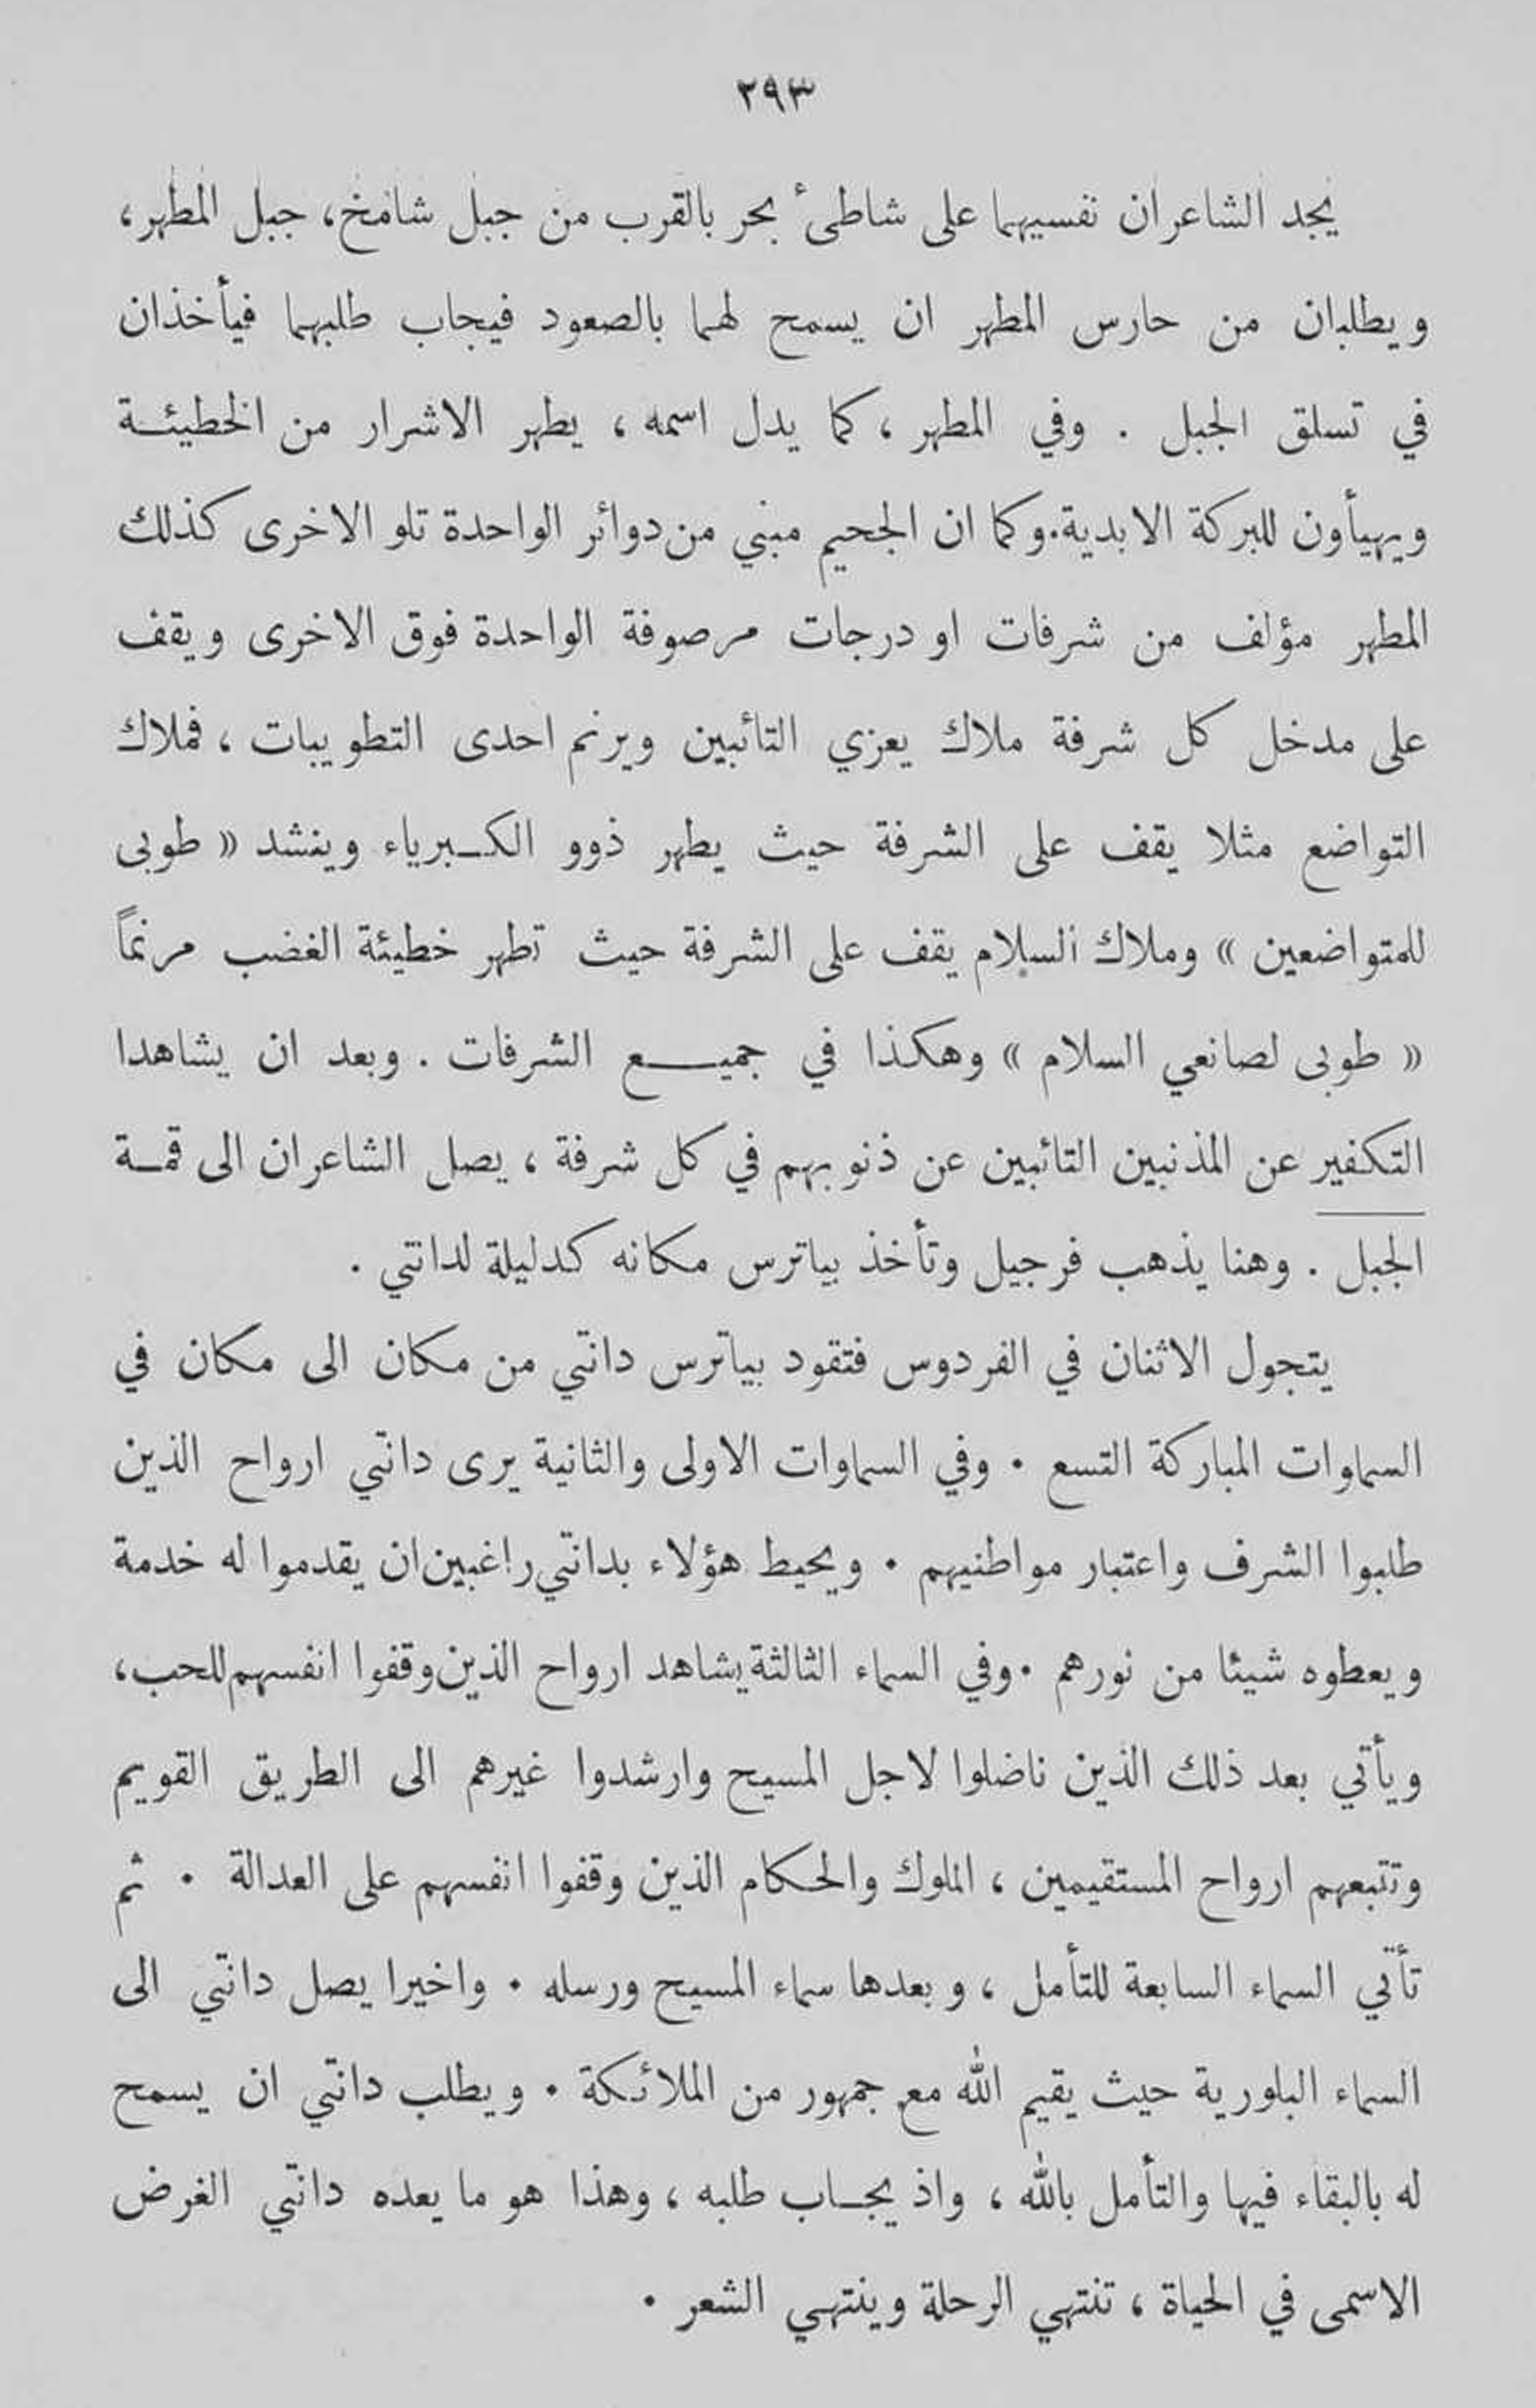 ٢٩٣
يجد الشاعران نفسيهما على شاطىء بحر بالقرب من جبل شامخ، جبل المطهر،
ويطلبان من حارس المطهر ان يسمح لهما بالصعود فيجاب طلبهما فيأخذان
في تسلق الجبل . وفي المطهر ، كما يدل اسمه ، يطهر الاشرار من الخطيئة
ويهيأون للبركة الابدية.وكما ان الجحيم مبني من دوائر الواحدة تلو الاخرى كذلك
المطهر مؤلف من شرفات او درجات مرصوفة الواحدة فوق الاخرى ويقف
على مدخل كل شرفة ملاك يعزي التائبين ويرنم احدى التطويبات ، فملاك
التواضع مثلا يقف على الشرفة حيث يطهر ذوو الكبرياء وينشد « طوبى
للمتواضعين » وملاك السلام يقف على الشرفة حيث تطهر خطيئة الغضب مرنماً
« طوبى لصانعي السلام » وهكذا في جميع الشرفات . وبعد ان يشاهدا
التكفير عن المذنبين التائبين عن ذنوبهم في كل شرفة ، يصل الشاعران الى قمة
الجبل . وهنا يذهب فرجيل وتأخذ بياترس مكانه كدليلة لدانتي .
يتجول الاثنان في الفردوس فتقود بياترس دانتي من مكان الى مكان في
السماوات المباركة التسع . وفي السماوات الاولى والثانية يرى دانتي ارواح الذين
طلبوا الشرف واعتبار مواطنيهم . ويحيط هؤلاء بدانتي راغبين ان يقدموا له خدمة
ويعطوه شيئا من نورهم .وفي السماء الثالثة يشاهد ارواح الذين وقفوا انفسهم للحب،
ويأتي بعد ذلك الذين ناضلوا لاجل المسيح وارشدوا غيرهم الى الطريق القويم
وتتبعهم ارواح المستقيمين ، الملوك والحكام الذين وقفوا انفسهم على العدالة . ثم
تأتي السماء السابعة للتأمل ، وبعدها سماء المسيح ورسله . واخيرا يصل دانتي الى
السماء البلورية حيث يقيم الله مع جمهور من الملائكة . ويطلب دانتي ان يسمح
له بالبقاء فيها والتأمل بالله ، واذ يجاب طلبه ، وهذا هو ما يعده دانتي الغرض
الاسمى في الحياة ، تنتهي الرحلة وينتهي الشعر .